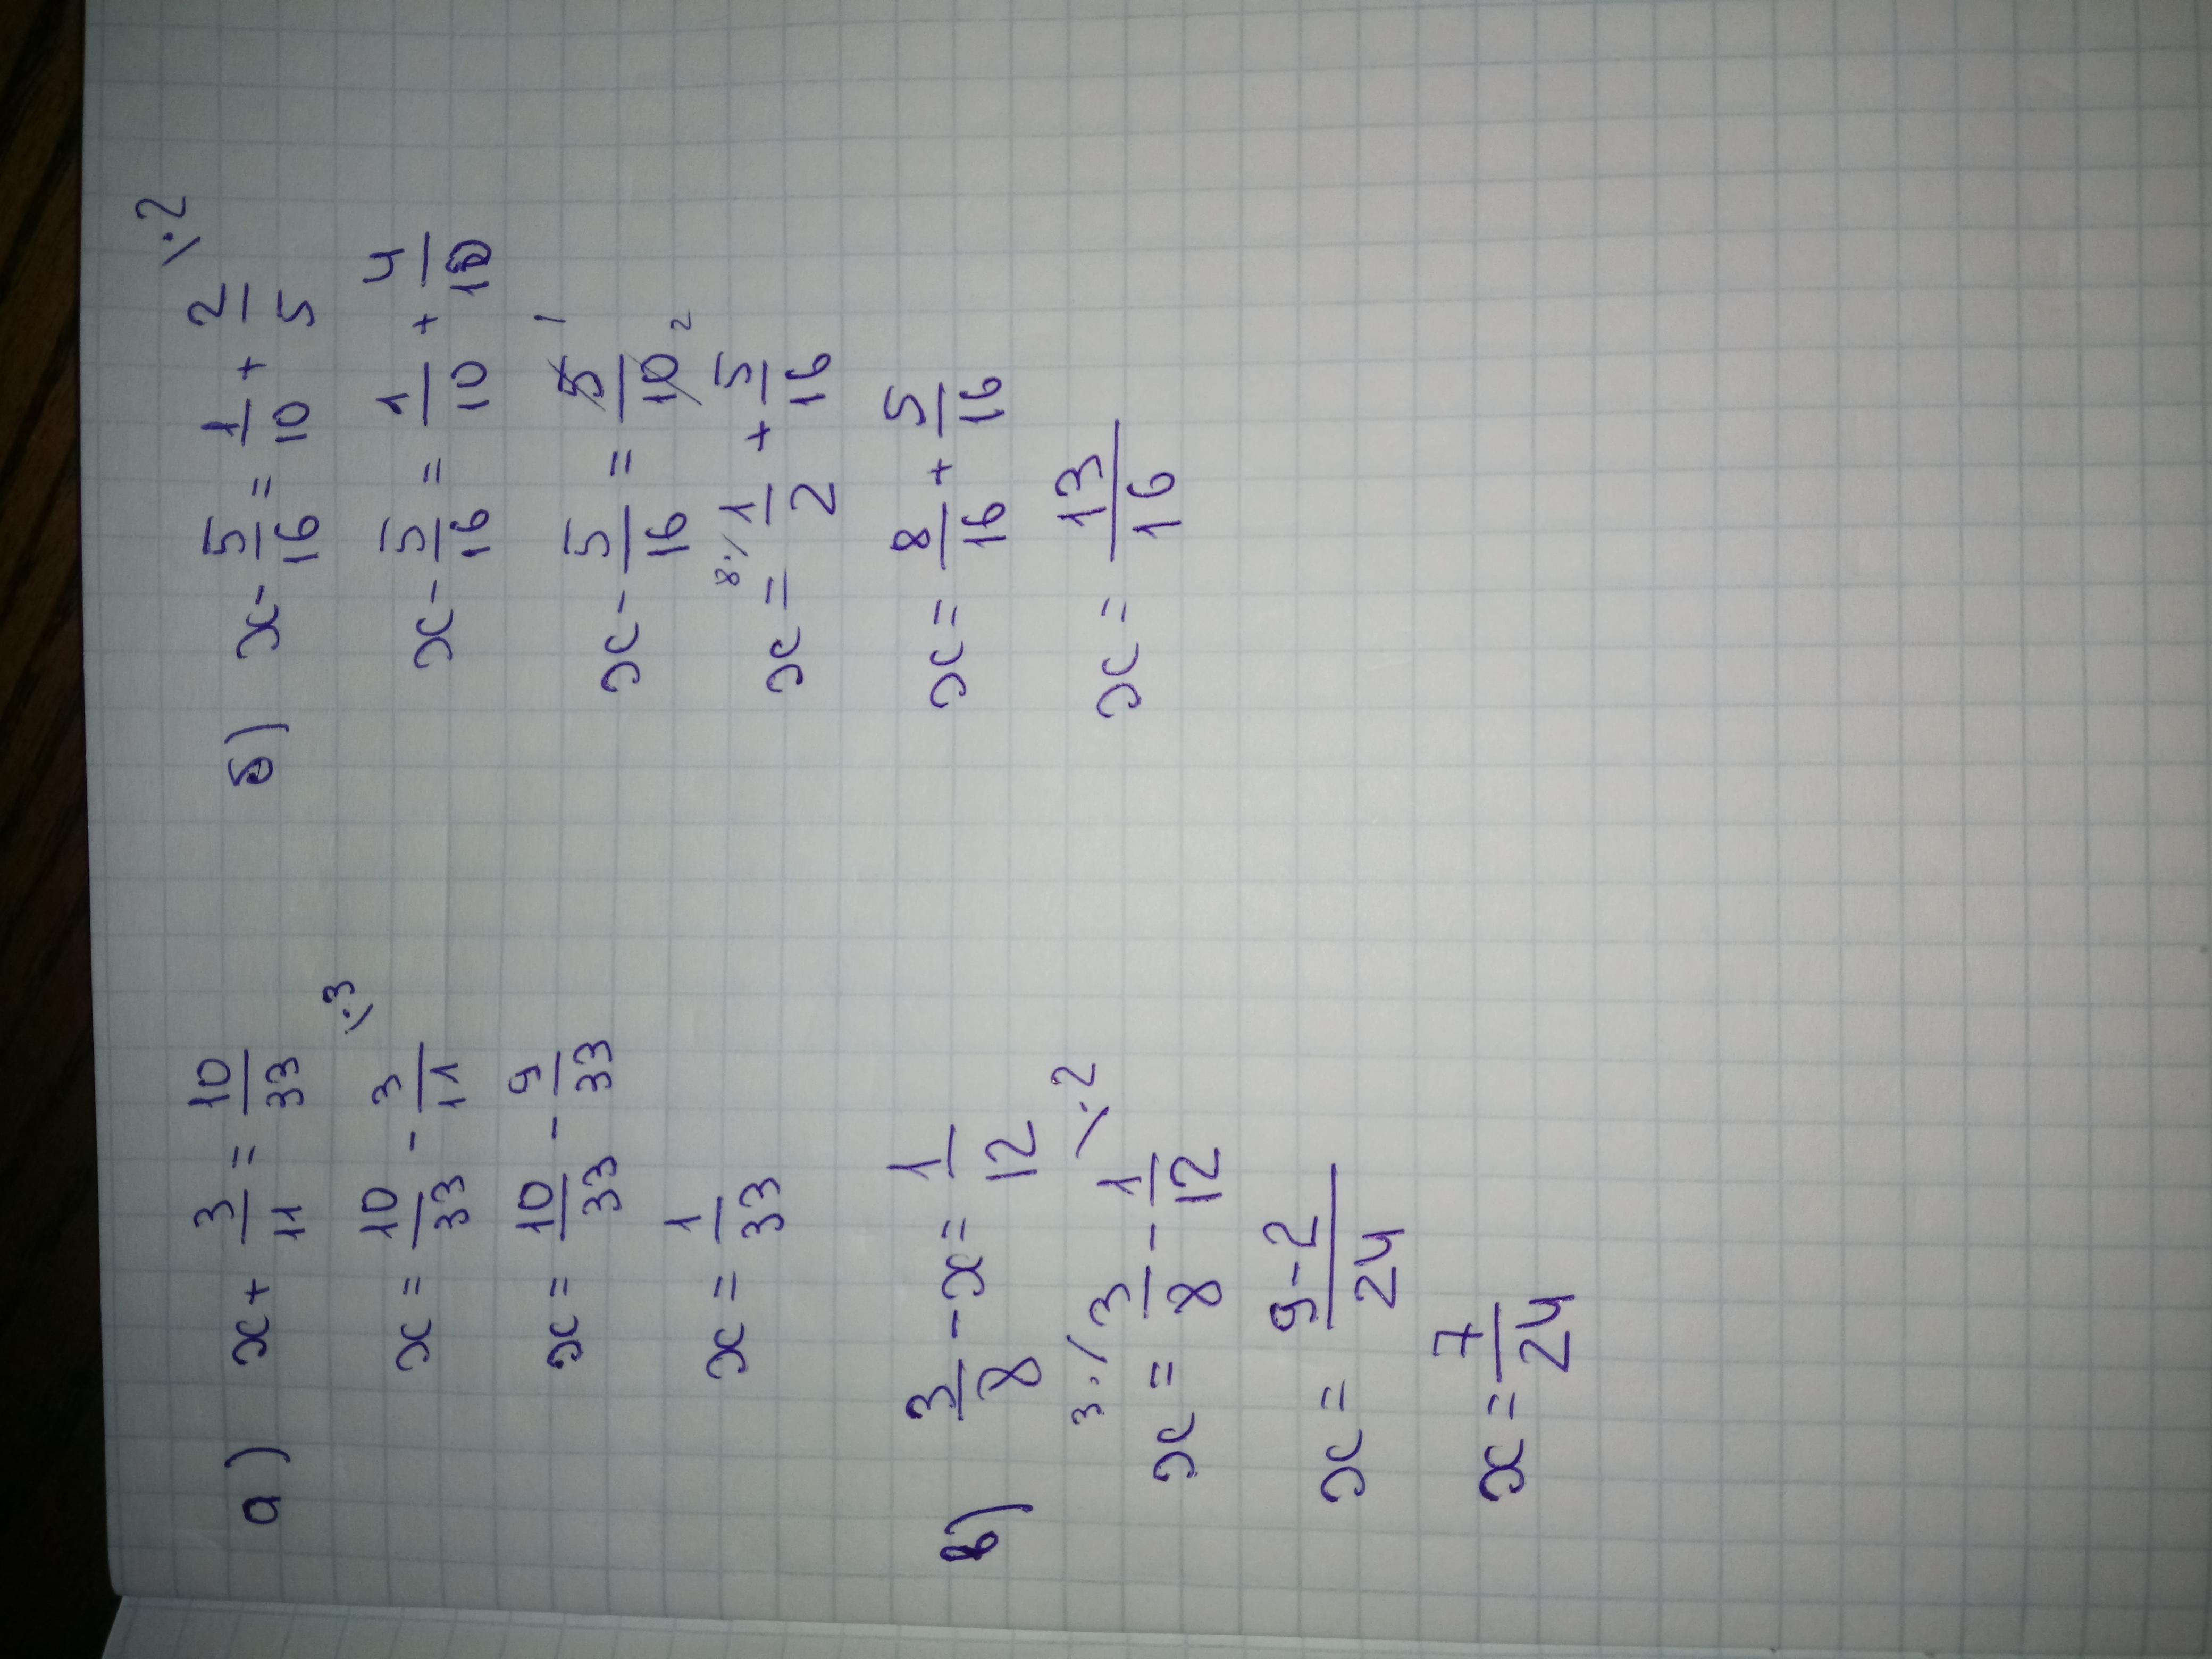 а) x + 3/11 = 10/33
x = 10/33 - 3/11 \·3
x = 10/33 - 9/33
x = 1/33
б) x - 5/16 = 1/10 + 2/5 \·2
x - 5/16 = 1/10 + 4/10
x - 5/16 = 5/10 1 2
x = 8·/ 1/2 + 5/16
x = 8/16 + 5/16
x = 13/16
в) 3/8 - x = 1/12
x = 3·/ 3/8 - 1/12 \·2
x = 9-2/24
x = 7/24